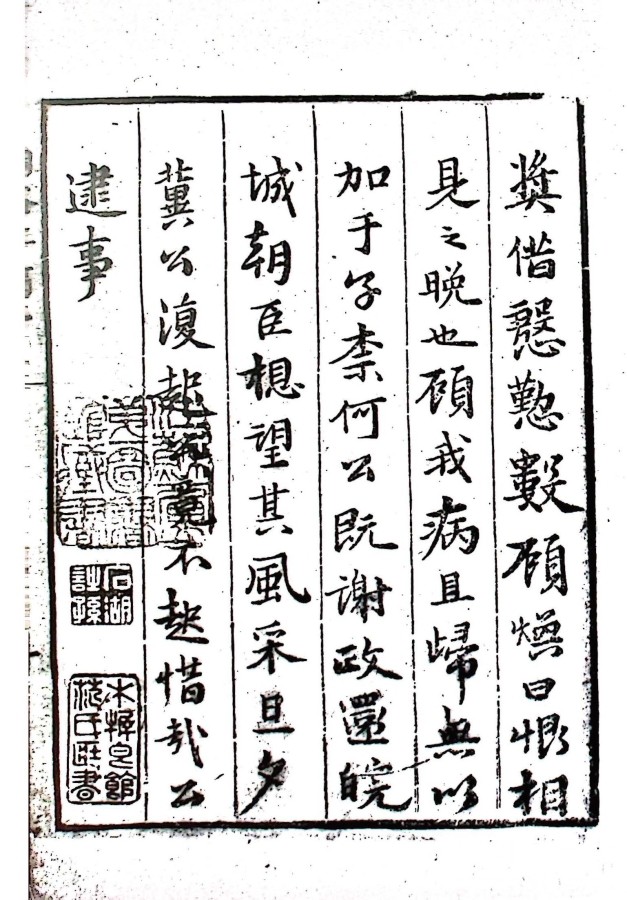 奬借慇懃數顧煥曰恨相
見之晚也顧我病且歸無以
加于子柰何公既謝政還皖
城朝臣想望其風采旦夕
冀公復起而竟不起惜哉公
逮事
石湖詩孫
木樨香館范氏藏書